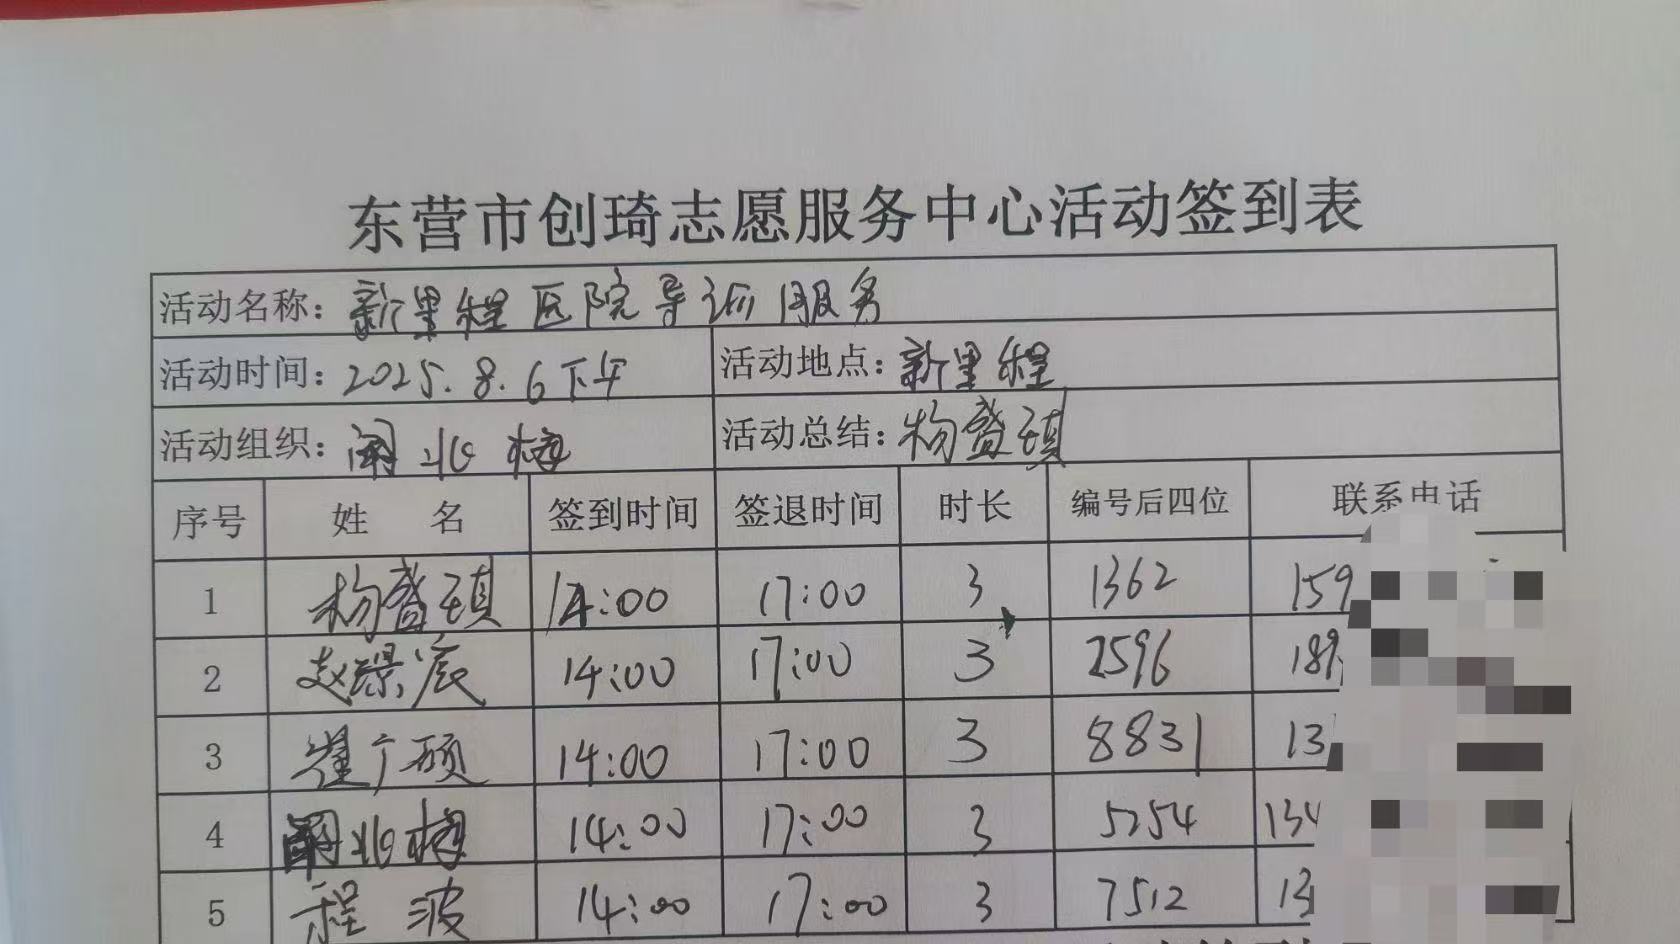 东营市创琦志愿服务中心活动签到表
活动名称：新里程医院导诊服务
活动时间：2025.8.6下午 活动地点：新里程
活动组织：北梅 活动总结：杨盛琪
序号 姓名 签到时间 签退时间 时长 编号后四位 联系电话
1 杨盛琪 14:00 17:00 3 1362 159
2 赵璟宸 14:00 17:00 3 2596 189
3 崔广硕 14:00 17:00 3 8831 13
4 北梅 14:00 17:00 3 5254 134
5 程波 14:00 17:00 3 7512 13